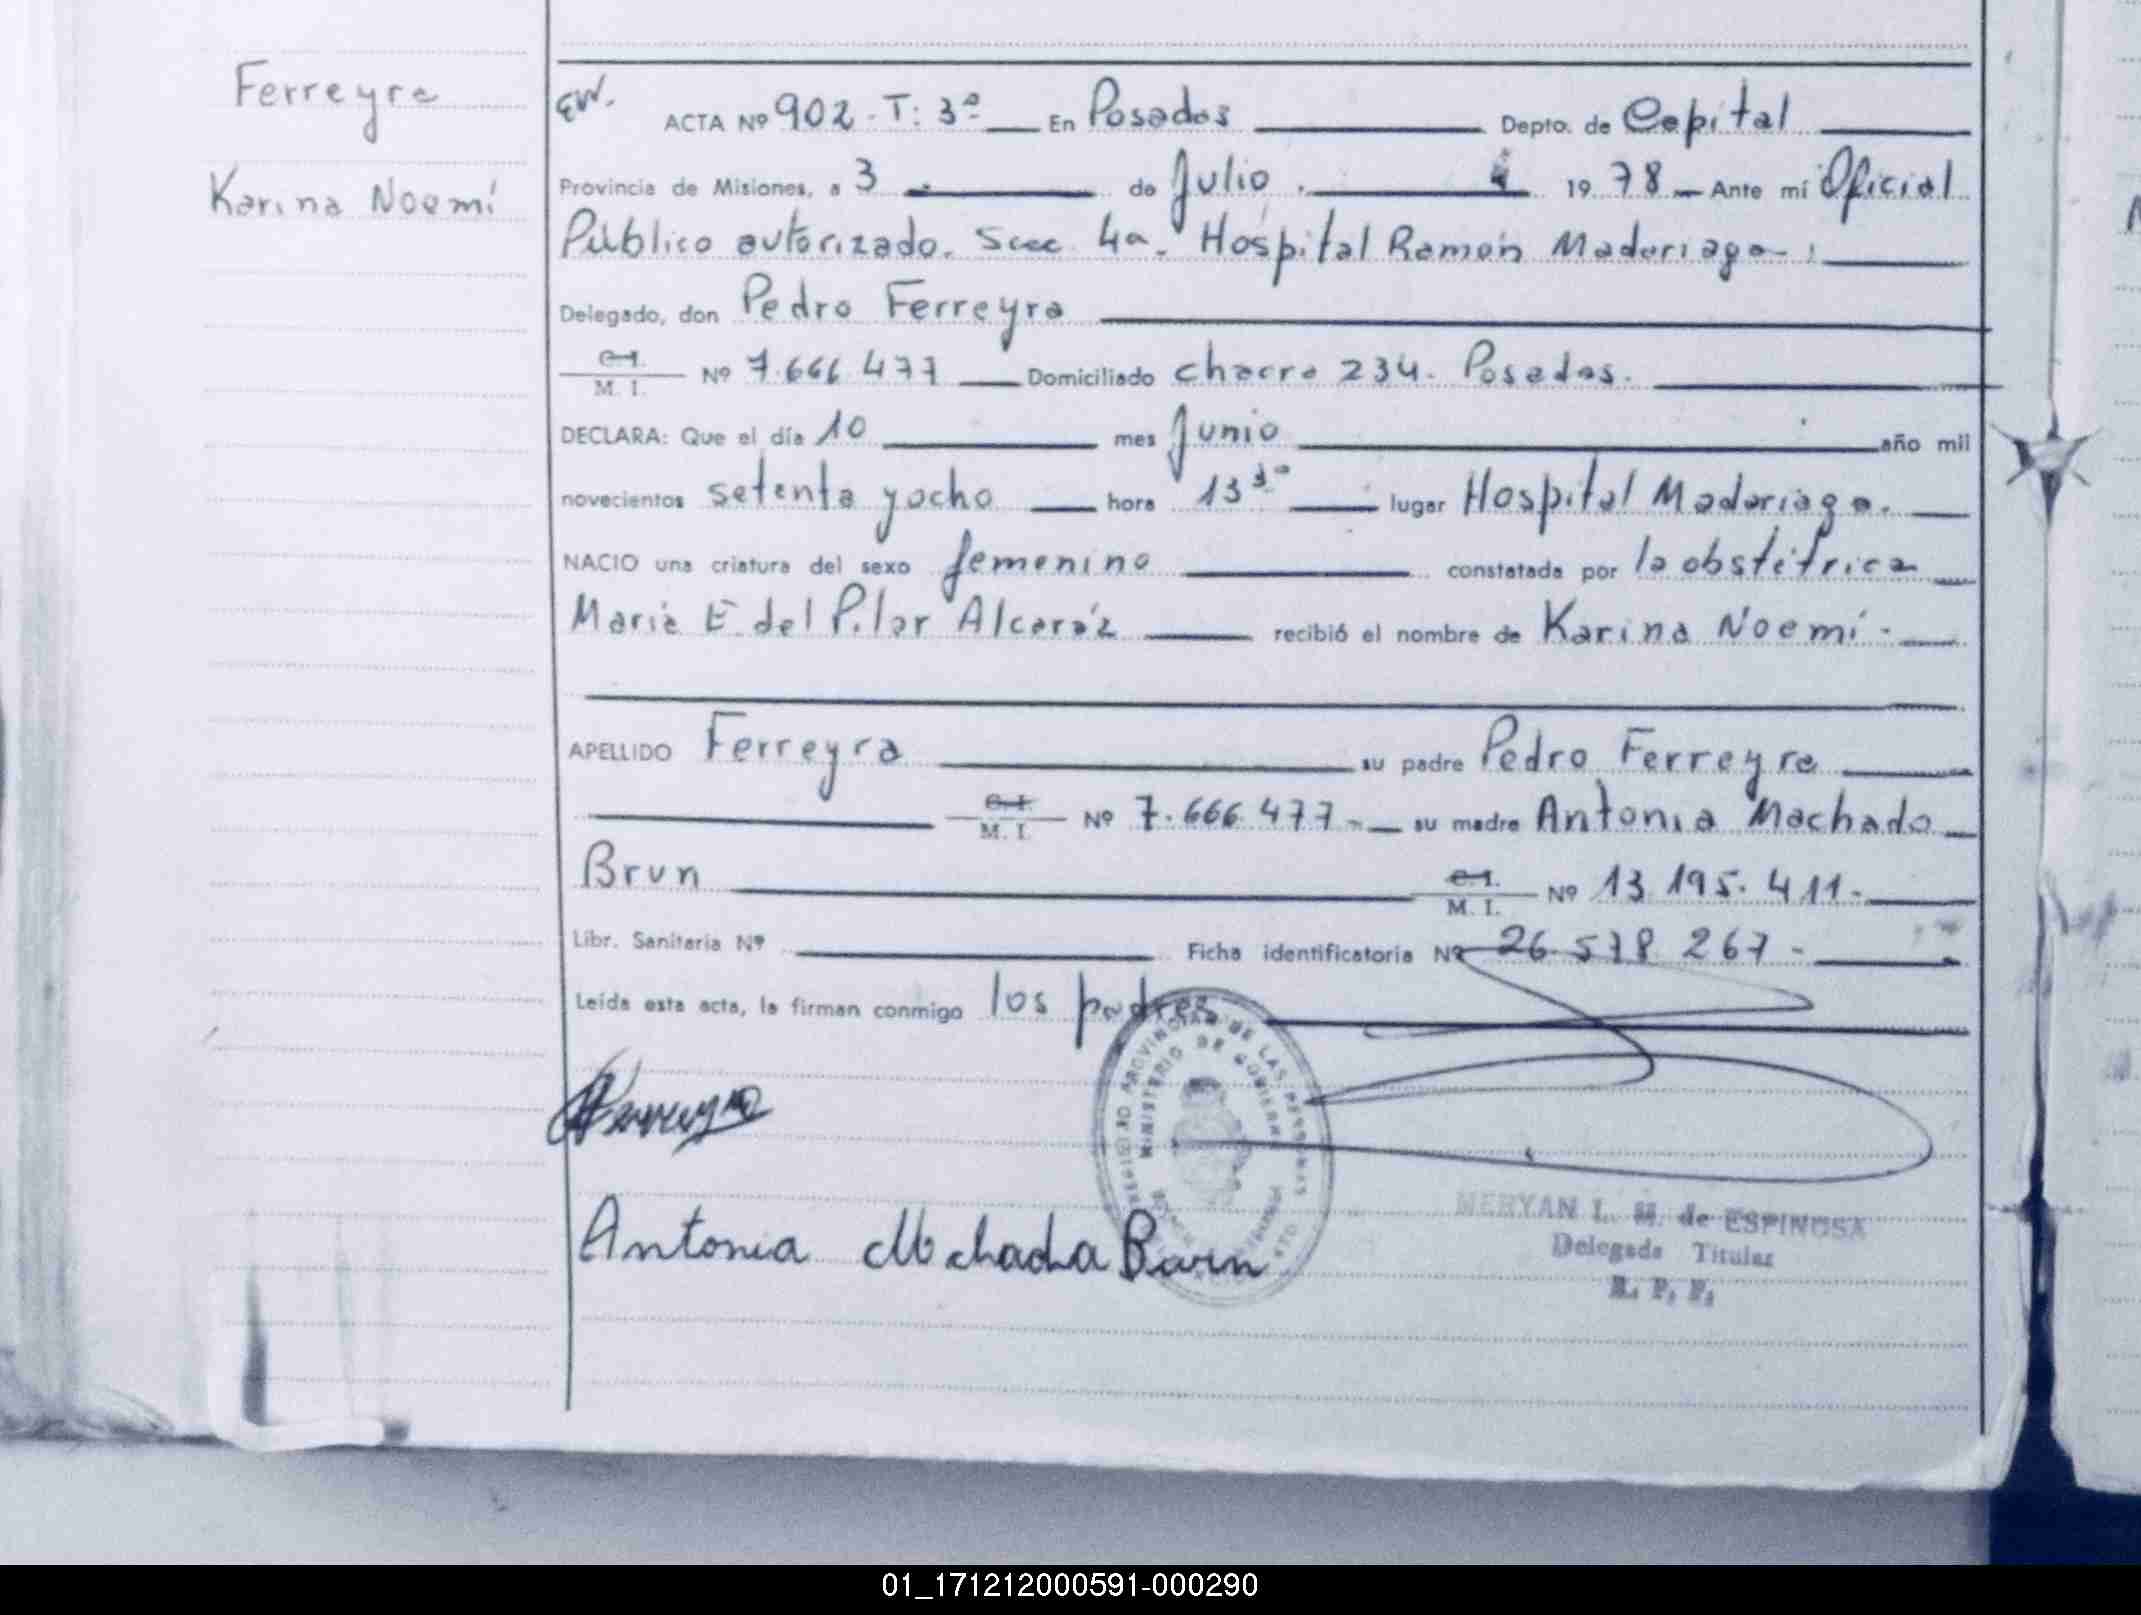 Ferreyra
Karina Noemí
EW. ACTA Nº 902 - T: 3º En Posadas Depto. de Capital
Provincia de Misiones, a 3 de Julio 1978 Ante mí Oficial
Público autorizado. Secc 4a. Hospital Ramón Madariaga
Delegado, don Pedro Ferreyra
C.I. M. I. Nº 7.666.477 Domiciliado chacra 234. Posadas.
DECLARA: Que el día 10 mes Junio año mil
novecientos setenta y ocho hora 13 30 lugar Hospital Madariaga.
NACIO una criatura del sexo femenino constatada por la obstétrica
María E. del Pilar Alcaráz recibió el nombre de Karina Noemí -
APELLIDO Ferreyra su padre Pedro Ferreyra
C.I. M. I. Nº 7.666.477 - su madre Antonia Machado
Brun C.I. M. I. Nº 13.195.411 -
Libr. Sanitaria Nº Ficha identificatoria Nº 26 578 267 -
Leída esta acta, la firman conmigo los padres
REGISTRO PROVINCIAL DE LAS PERSONAS
MINISTERIO DE GOBIERNO
Ferreyra
Antonia Machado Brun
MERYAN L. M. de ESPINOSA
Delegada Titular
R. P. P.
01_171212000591-000290